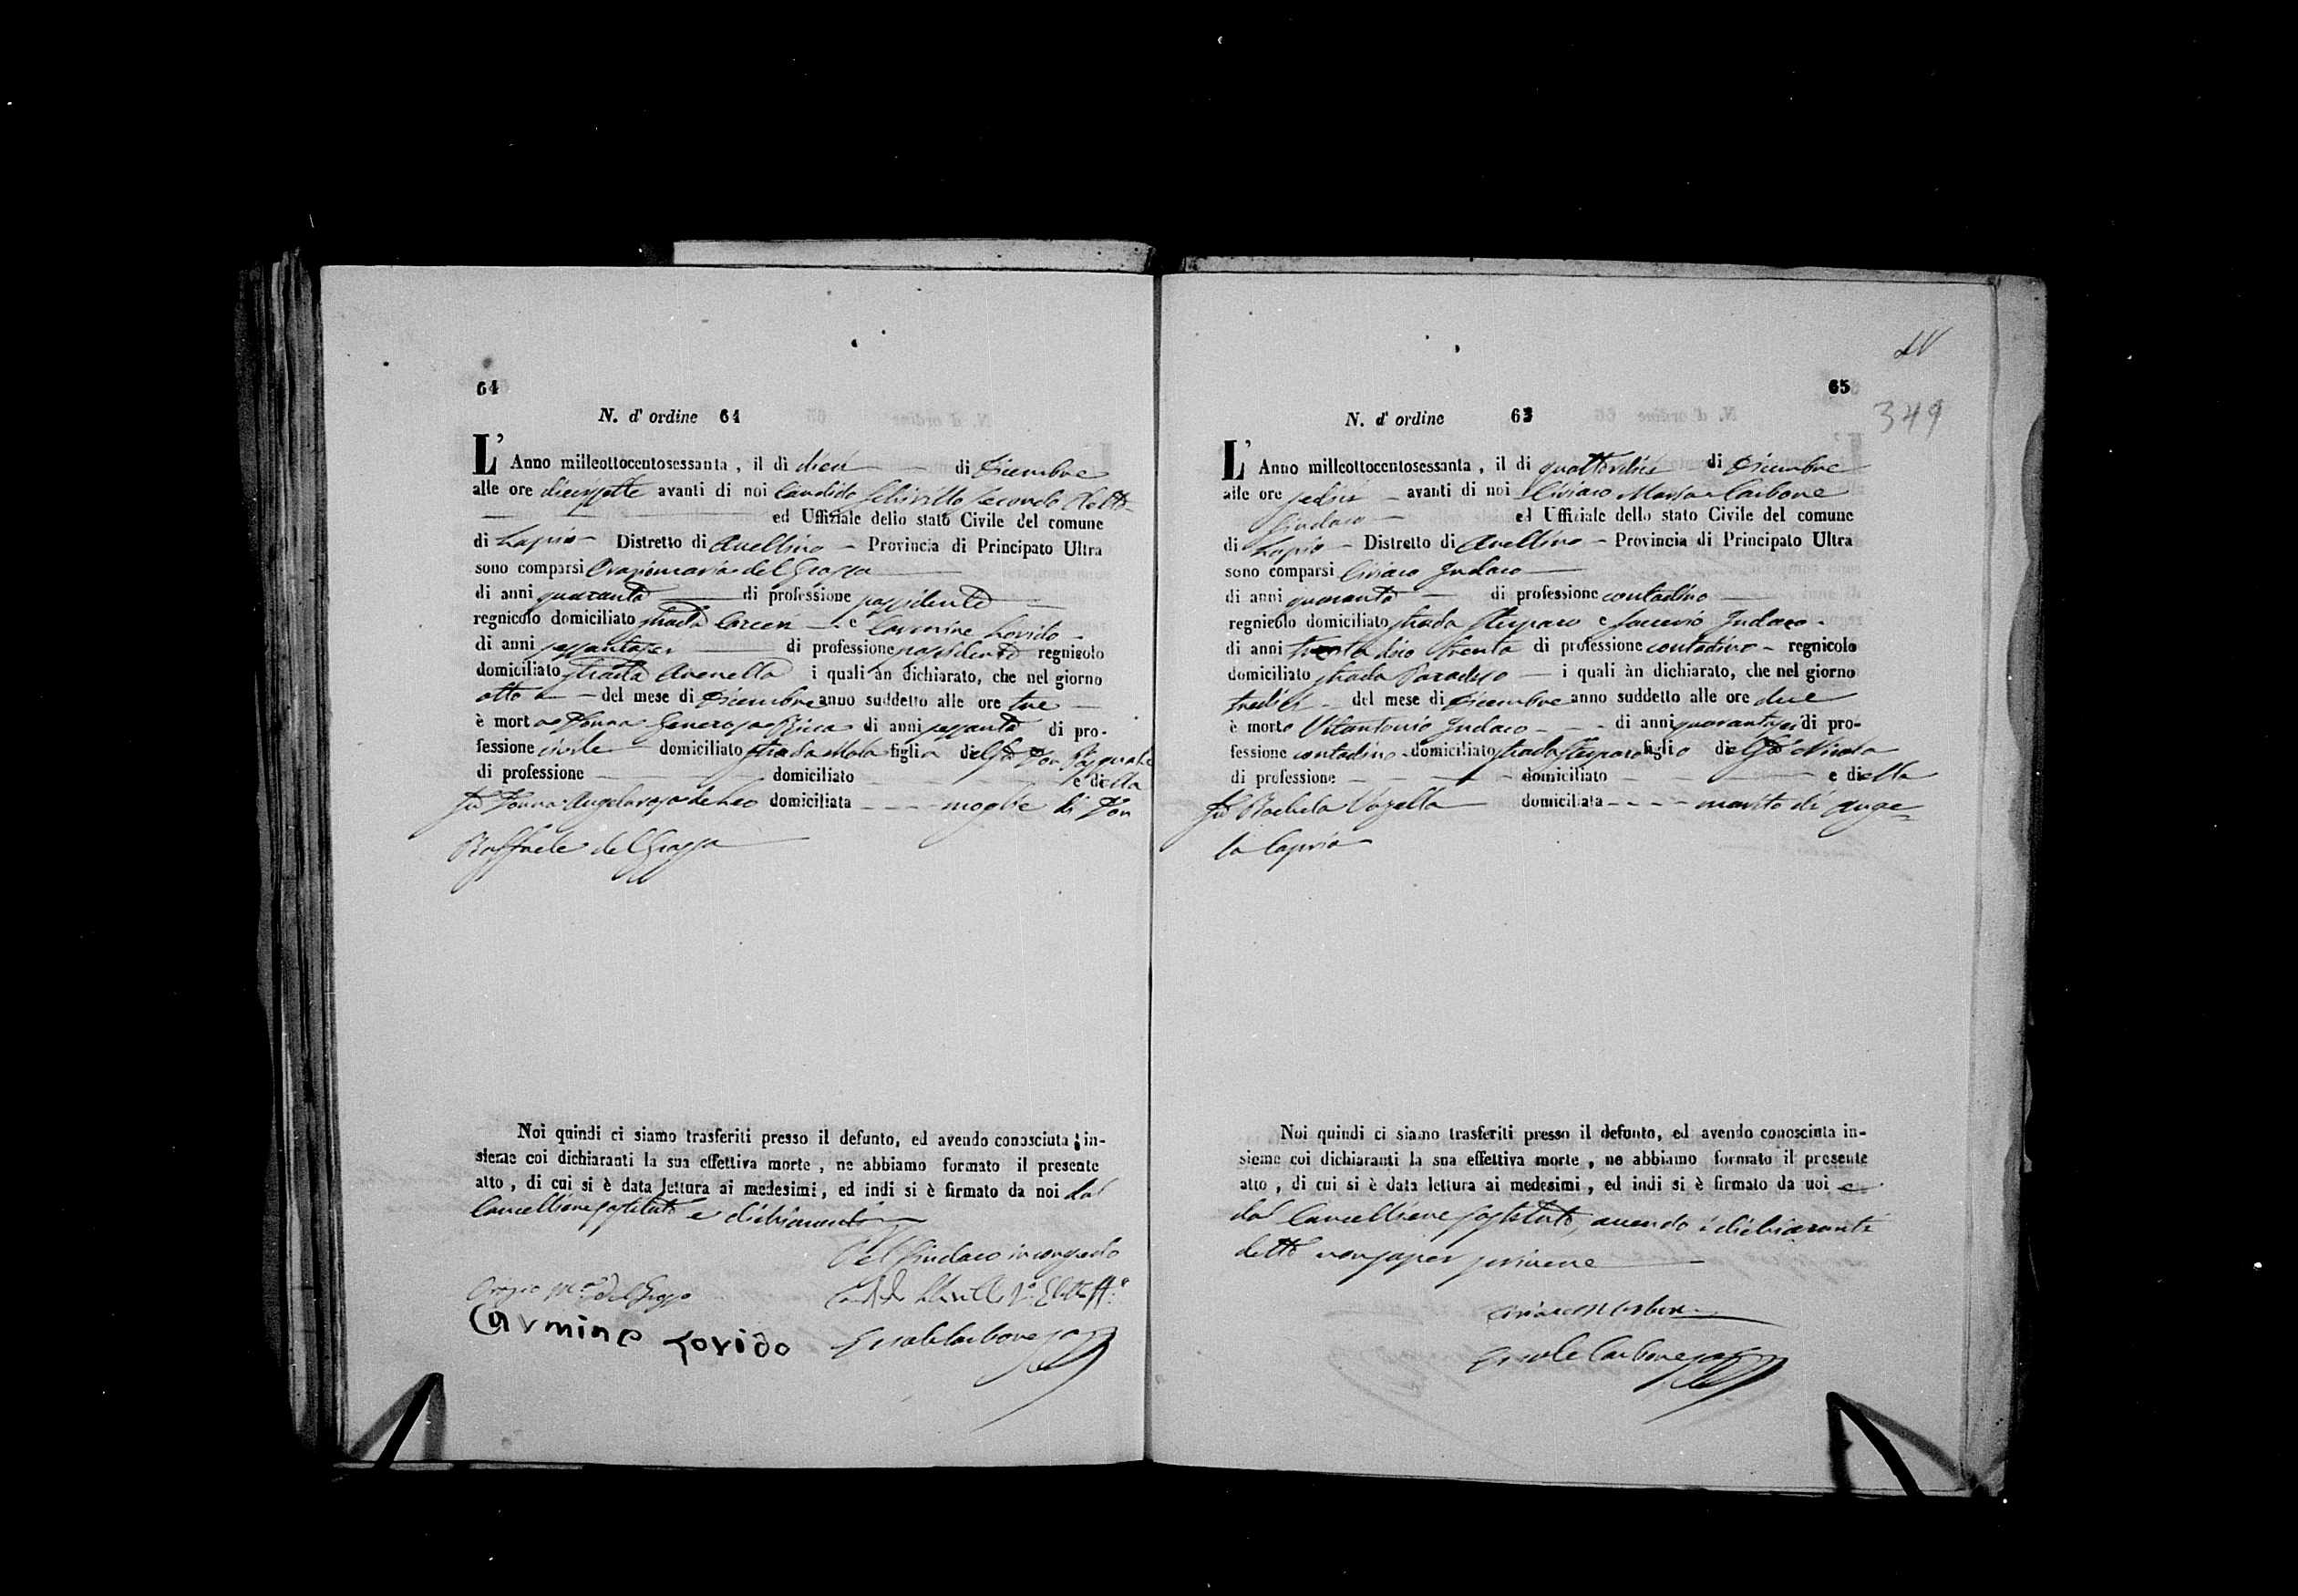 64
N. d' ordine 64
L' Anno milleottocentosessanta, il dì dieci di Dicembre
alle ore diecisette avanti di noi Candido Schirillo secondo Eletto
ed Uffiziale dello stato Civile del comune
di Lapio Distretto di Avellino Provincia di Principato Ultra
sono comparsi Oraziomaria del Grosso
di anni quaranta di professione possidente
regnicolo domiciliato strada Carceri e Carmine Lovido
di anni sessantasei di professione possidente regnicolo
domiciliato strada i quali àn dichiarato, che nel giorno
otto del mese di Dicembre anno suddetto alle ore tre
è morta Donna Generosa di anni sessanta di pro-
fessione civile domiciliato strada figlia del fu Don Pasquale
di professione domiciliato e della
fu Donna Angelarosa de Leo domiciliata moglie di Don
Raffaele del Grosso
Noi quindi ci siamo trasferiti presso il defunto, ed avendo conosciuta in-
sieme coi dichiaranti la sua effettiva morte, ne abbiamo formato il presente
atto, di cui si è data lettura ai medesimi, ed indi si è firmato da noi dal
Cancelliere sostituto e dichiaranti
Pel Sindaco in congedo
Orazio Ma del Grosso
Carmine Lovido
Ercole Carbone
65
349
N. d' ordine 65
L' Anno milleottocentosessanta, il dì quattordici di Dicembre
alle ore sedici avanti di noi Ciriaco Maria Carbone
Sindaco ed Uffiziale dello stato Civile del comune
di Lapio Distretto di Avellino Provincia di Principato Ultra
sono comparsi Ciriaco Iudaco
di anni quaranta di professione contadino
regnicolo domiciliato strada e Saverio Iudaco
di anni trenta di professione contadino regnicolo
domiciliato strada Paradiso i quali àn dichiarato, che nel giorno
tredici del mese di Dicembre anno suddetto alle ore due
è morto Vitantonio Iudaco di anni quarantasei di pro-
fessione contadino domiciliato strada figlio del fu Nicola
di professione domiciliato e della
fu Rachela Vozella domiciliata marito di Ange=
la Caprio
Noi quindi ci siamo trasferiti presso il defunto, ed avendo conosciuta in-
sieme coi dichiaranti la sua effettiva morte, ne abbiamo formato il presente
atto, di cui si è data lettura ai medesimi, ed indi si è firmato da noi e
dal Cancelliere sostituto, avendo i dichiaranti
detto non saper scrivere
Ciriaco M Carbone
Ercole Carbone